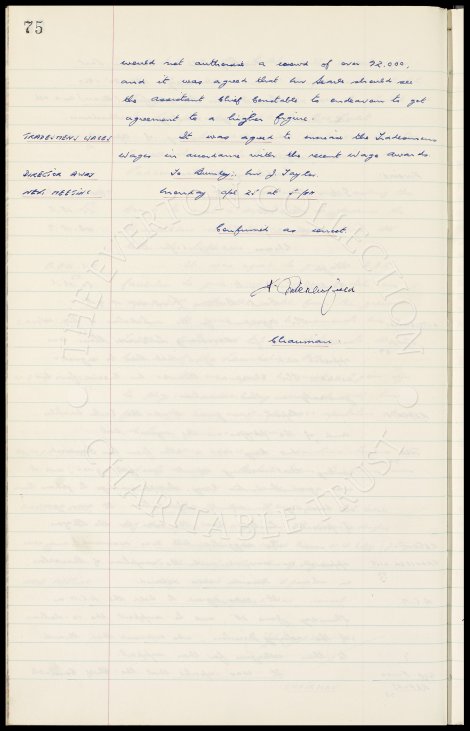 75
would not authorise a crowd of over 72.000,
and it was agreed that Mr Searle should see
the Assistant Chief Constable to endeavour to get
agreement to a higher figure.
TRADESMENS WAGES It was agreed to increase the Tradesmens
wages in accordance with the recent wage awards.
DIRECTOR AWAY To Burnley: Mr J Taylor.
NEXT MEETING Monday Apl 21 at 5 pm
Confirmed as correct.
Chairman.
THE EVERTON COLLECTION
CHARITABLE TRUST